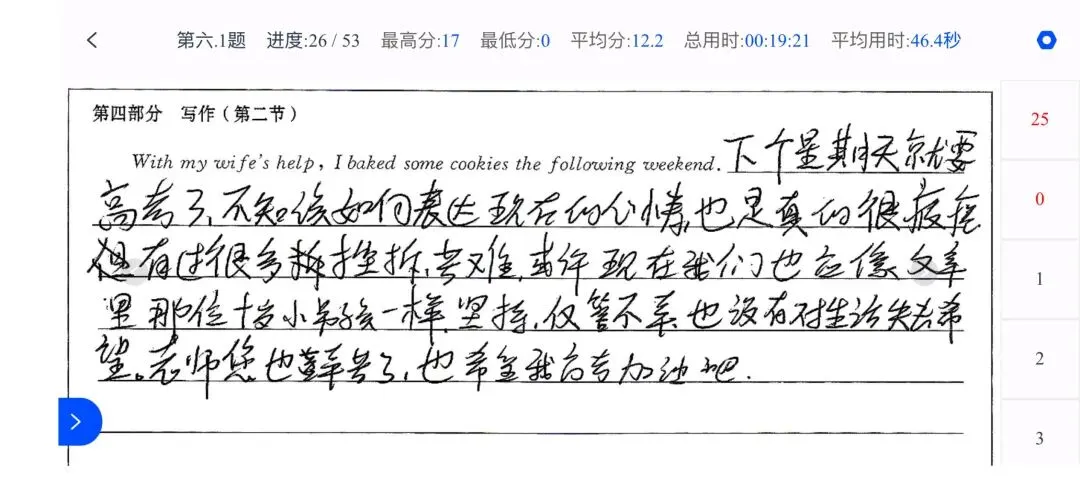 第六.1题 进度:26 / 53 最高分:17 最低分:0 平均分:12.2 总用时:00:19:21 平均用时:46.4秒
第四部分 写作(第二节)
With my wife's help, I baked some cookies the following weekend. 下个星期天就要
高考了,不知该如何表达现在的心情,也是真的很疲惫
但有过很多挫折,苦难,或许现在我们也应像文章
里那位十岁小男孩一样,坚持,仅管不幸,也没有对生活失去希
望。老师您也辛苦了,也希望我高考加油吧.
25
0
1
2
3